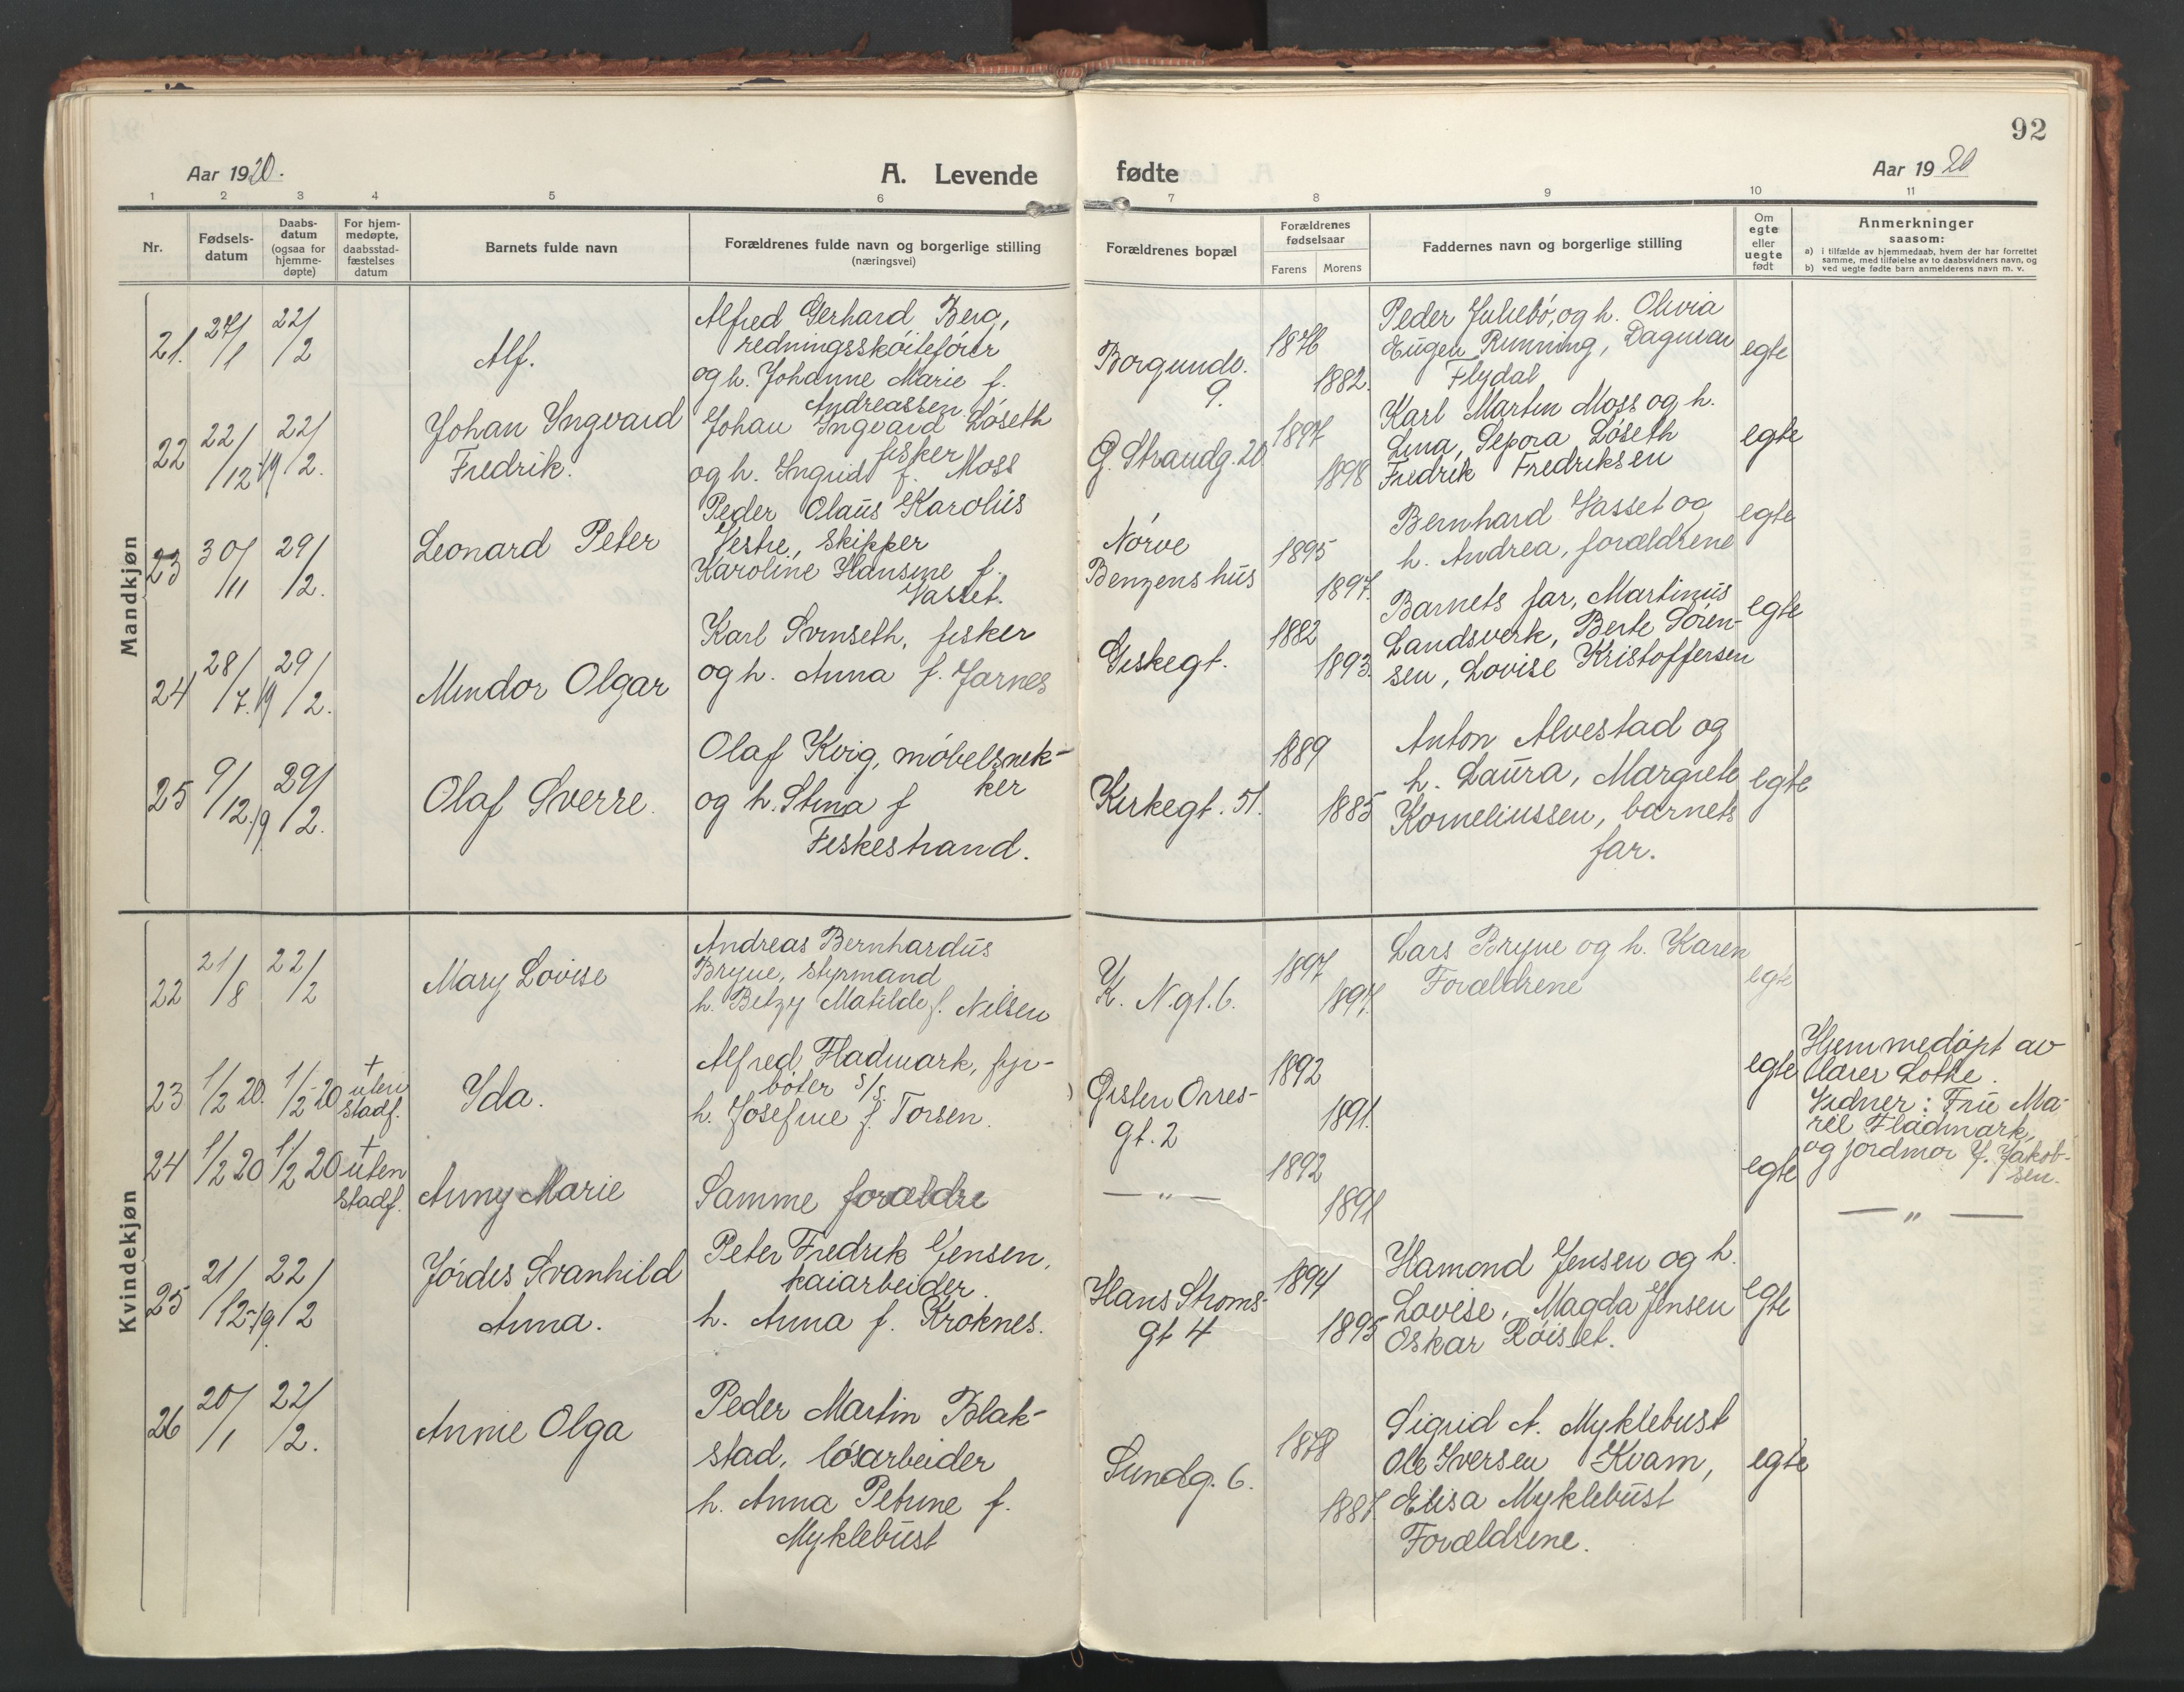 92
Aar 1920.
A. Levende fødte
Aar 1920
1 2 3 4 5 6 7 8 9 10 11
Nr.
Fødsels-
datum
Daabs-
datum
(ogsaa for
hjemme-
døpte)
For hjem-
medøpte,
daabsstad-
fæstelses
datum
Barnets fulde navn
Forældrenes fulde navn og borgerlige stilling
(næringsvei)
Forældrenes bopæl
Forældrenes
fødselsaar
Farens Morens
Faddernes navn og borgerlige stilling
Om
egte
eller
uegte
født
Anmerkninger
saasom:
a) i tilfælde av hjemmedaab, hvem der har forrettet
samme, med tilføielse av to daabsvidners navn, og
b) ved uegte fødte barn anmelderens navn m. v.
Mandkjøn
21. 27/1 22/2
Alf.
Alfred Gerhard Berg,
redningsskøitefører
og h. Johanne Marie f.
Andreassen
Borgundv.
9.
1876
1882.
Peder Juliebø, og h. Olivia
Eugen Running, Dagmar
Flydal
egte
22 22/12 19 22/2.
Johan Yngvard
Fredrik.
Johan Yngvard Løseth
fisker
og h. Yngrid f. Moss
G. Strandg. 20
1897
1898
Karl Martin Moss og h.
Lina, Sepora Løseth
Fredrik Fredriksen
egte
23 30/11 29/2.
Leonard Peter
Peder Olaus Karolus
Vestre, skipper
Karoline Hansine f.
Vasset.
Nørve
Benzenshus
1895
1897.
Bernhard Vasset og
h. Andrea, forældrene
egte
24 28/7. 19 29/2.
Mindor Olgar
Karl Svinseth, fisker
og h. Anna f. Jarnes
Giskegt.
1882
1893.
Barnets far, Martinus
Landsverk, Berte Søren-
sen, Lovise Kristoffersen
egte
25 9/12. 19 29/2.
Olaf Sverre.
Olaf Kvig, møbelsnek-
ker
og h. Stina f
Fiskestrand.
Kirkegt. 51.
1889
1885
Anton Alvestad og
h. Laura, Margrete
Korneliussen, barnets
far.
egte
Kvindekjøn
22 21/8 22/2
Mary Lovise
Andreas Bernhardus
Bryne, styrmand
h. Betzy Matilde f. Nilsen
K. N. gt. 6.
1897
1897.
Lars Bryne og h. Karen
Forældrene
egte
23 1/2 20. 1/2 20 † uten
stadf.
Yda.
Alfred Fladmark, fyr-
bøter s/s.
h. Josefine f. Torsen.
Gisten Orres-
gt. 2
1892
1891.
egte
Hjemmedøpt av
lærer Lothe.
Vidner: Frü Ma-
rit Fladmark,
og jordmor J. Jakob-
sen.
24 1/2 20 1/2 20 † uten
stadf.
Anny Marie
Samme forældre
— " —
1892
1891
egte
— " —
25 21/12-19 22/2
Jørdis Svanhild
Anna.
Peter Fredrik Jensen,
kaiarbeider.
h. Anna f. Kroknes.
Hans Strøms-
gt 4
1894
1895
Hamond Jensen og h.
Lovise, Magda Jensen
Oskar Røiset.
egte
26 20/1 22/2.
Annie Olga
Peder Martin Blak-
stad, løsarbeider
h. Anna Petrine f.
Myklebust
Sundg. 6.
1878
1887.
Sigrid A. Myklebust
Ole Iversen Kvam,
Elisa Myklebust
Forældrene.
egte